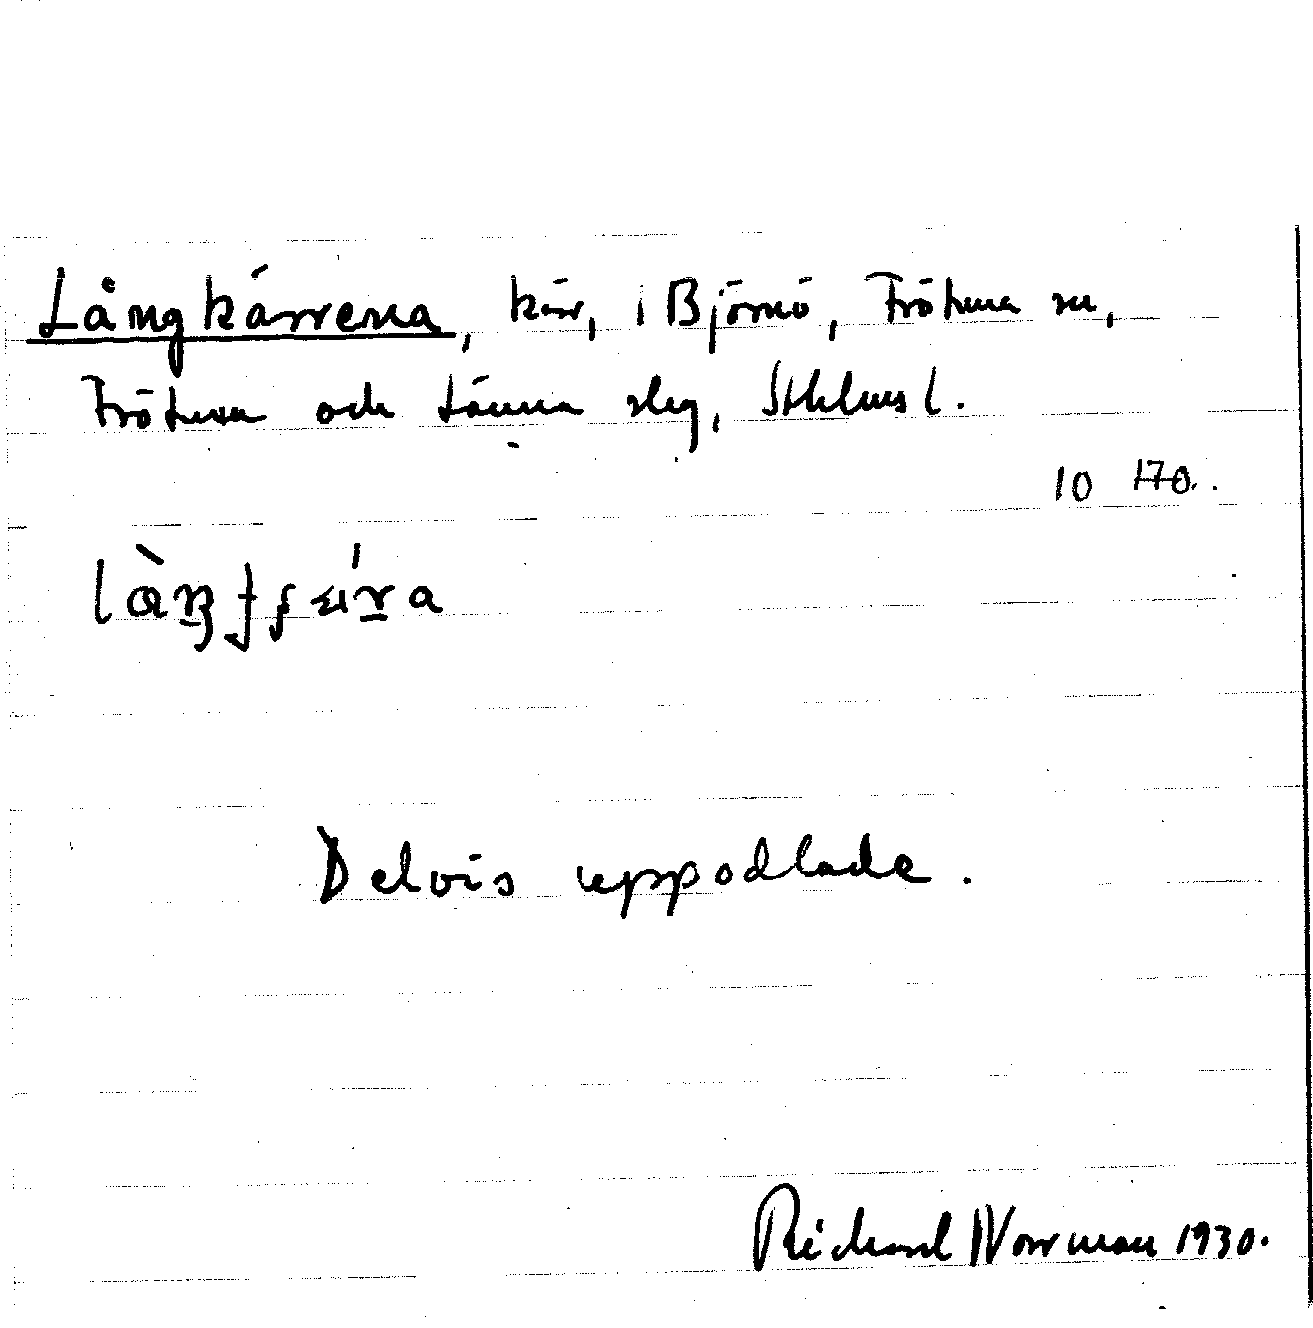 Långkärrena, kärr, i Björnö, Frötuna sn,
Frötuna och Länna slg, Sthlms l.
10 170.
Delvis uppodlade.
Richard Norrman 1930.